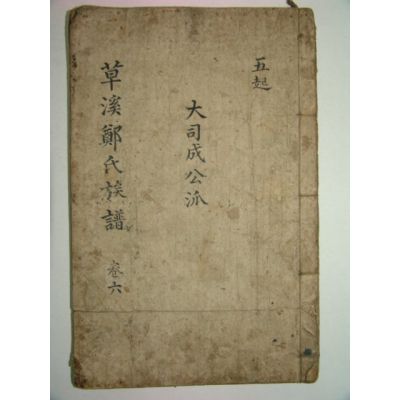 五起
大司成公派
草溪鄭氏族譜 卷六